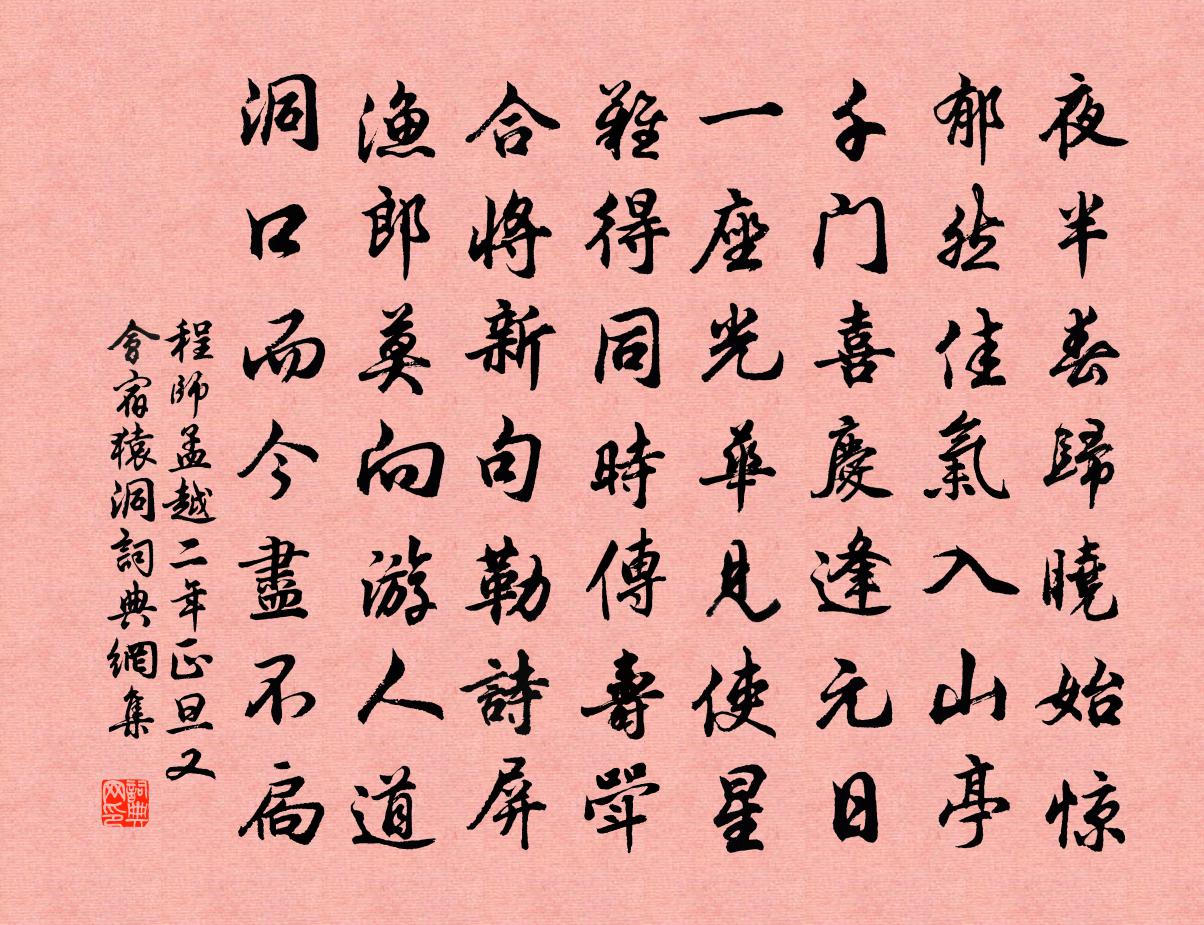 夜半春歸曉始惊
郁然佳氣入山亭
千門喜慶逢元日
一座光華見使星
難得同時傳壽斝
合將新句勒詩屏
漁郎莫向游人道
洞口而今盡不扃
程師孟越二年正旦又
會宿猿洞詞典網集
詞典网印